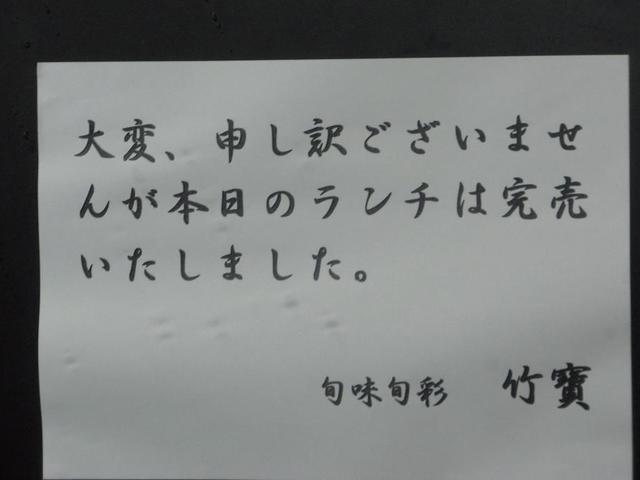 大変、申し訳ございませ
んが本日のランチは完売
いたしました。
旬味旬彩 竹寳